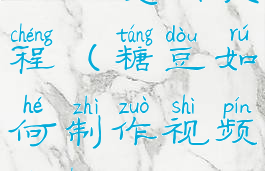 chéng táng dòu rú
程（糖豆如
hé zhì zuò shì pín
何制作视频